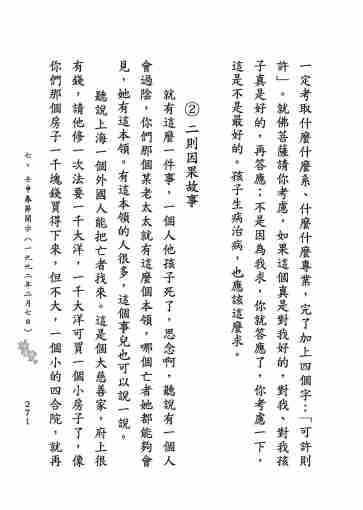 一定考取什麼什麼系、什麼什麼專業，完了加上四個字：「可許則
許」。就佛菩薩請你考慮，如果這個真是對我好的，對我、對我孩
子真是好的，再答應；不是因為我求，你就答應了，你考慮一下，
這是不是最好的。孩子生病治病，也應該這麼求。
② 二則因果故事
就有這麼一件事，一個人他孩子死了。思念啊，聽說有一個人
會過陰，你們那個某老太太就有這麼個本領，哪個亡者她都能夠會
見，她有這本領。有這本領的人很多，這個事兒也可以說一說。
聽說上海一個外國人能把亡者找來。這是個大慈善家，府上很
有錢，請他修一次法要一千大洋，一千大洋可買一個小房子了，像
你們那個房子一千塊錢買得下來，但不大，一個小的四合院，就再
七、壬申春節開示（一九九二年二月七日）
271